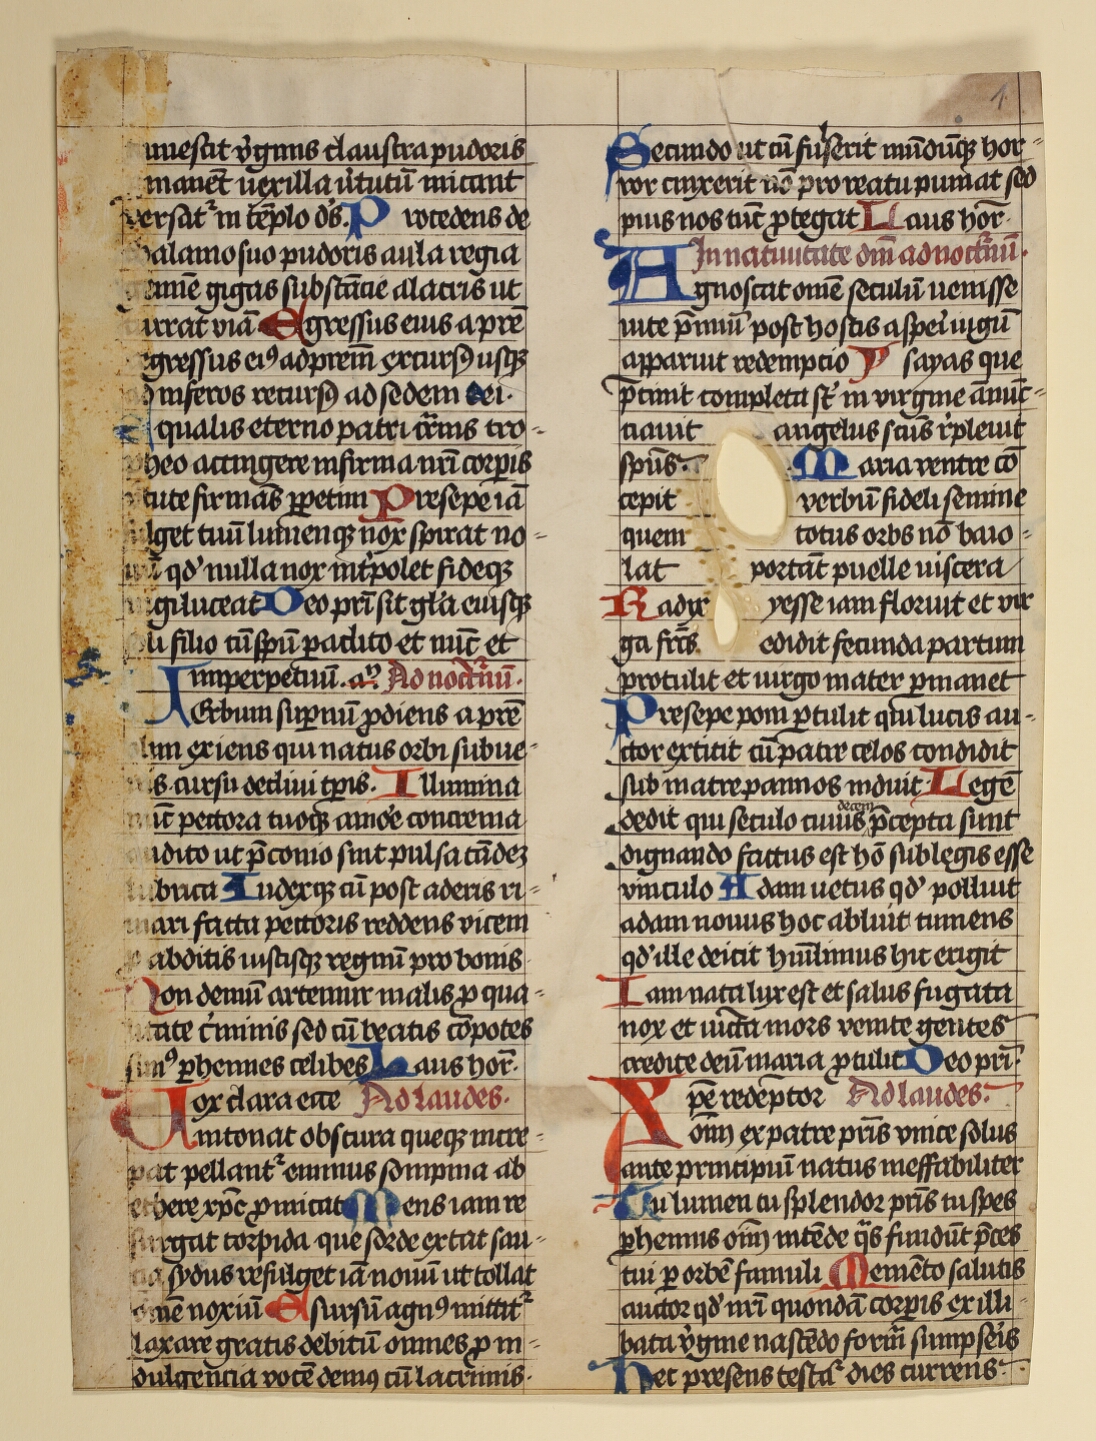 tumescit v̾ginis claustra pudoris
manet uexilla v̾tutū micant
versat᷑ in tēplo d̄s. Procedens de
thalamo suo pudoris aula regia
gemīe gigas substācie alacris ut
currat viā Egressus eius a prē
regressus ei⁹ ad prem̄ excurs⁹ usqꝫ
ad inferos recurs⁹ ad sedem dei.
Equalis eterno patri carnis tro-
pheo accingere infirma nr̄i corꝑis
v̾tute firmās ꝑpetim Presepe iā
fulget tuū lumenqꝫ nox spirat no-
uū qd' nulla nox int̾polet fideqꝫ
iugi luceat Deo pr̄i sit gl̄a eiusqꝫ
soli filio cū spū paclito et nūc et
inperpetuū. a᷑. Ad noct᷑nū.
Uerbum suꝑnū ꝓdiens a prē
olim exiens qui natus orbi subue-
nis cursu decliui tꝑis. Illumina
nūc pectora tuoqꝫ amo'e concrema
audito ut p̄conio sint pulsa tādeꝫ
lubrica Iudexqꝫ cū post aderis ri-
mari facta pectoris reddens vicem
ꝓ abditis iustisqꝫ regnū pro bonis
Non demū artemur malis ꝓ qua-
litate c'minis sed cū beatis cōpotes
sim⁹ ꝑhennes celibes Laus hor̄.
Uox clara ecce Ad laudes.
intonat obscura queqꝫ incre-
pat pellant᷑ eminus sompnia ab
ethere xp̄c ꝓmicat Mens iam re
surgat torpida que sorde extat sau-
cia sydus refulget iā nouū ut tollat
om̄e noxiū E sursū agn⁹ mittit᷑
laxare gratis debitū omnes ꝓ in-
dulgencia vocē dem⁹ cū lacrimis.
Secundo ut cū fulserit mūdūqꝫ hor-
ror cinxerit nō pro reatu puniat sed
pius nos tūc ꝓtegat Laus hor̄.
In natiuitate dn̄i ad noct᷑nū.
Agnoscat om̄e seculū uenisse
uite p̄miū post hostis asperi iugū
apparuit redempcio Ysayas que
p̄cinit completa st̄ in virgine anūc-
ciauit angelus scūs r̾pleuit
spūs. Maria ventre cō
cepit verbū fideli semine
quem totus orbs nō baio-
lat portāt puelle uiscera
Radix yesse iam floruit et vir
ga fr̄cs edidit fecunda partum
protulit et uirgo mater ꝑmanet
Presepe poni ꝑtulit qui lucis au-
ctor extitit cū patre celos condidit
sub matre pannos induit Legē
dedit qui seculo cuius decem p̄cepta sunt
dignando factus est hō sub legis esse
vinculo Adam uetus qd' polluit
adam nouus hoc abluit tumens
qd' ille deicit hūilimus hic erigit
Iam nata lux est et salus fugata
nox et uicta mors venite gentes
credite deū maria ꝓtulit Deo pr̄i.
Xpē redēptor Ad laudes.
om̄i ex patre pr̄is vnice solus
ante principiū natus ineffabiliter
Tu lumen tu splendor pr̄is tu spes
ꝑhennis om̄i intēde q̄s fundūt p̄ces
tui ꝑ orbē famuli Memēto salutis
auctor qd' nr̄i quondā corꝑis ex illi-
bata v̾gine nascēdo formā sumpse'is
Hec presens testat᷑ dies currens